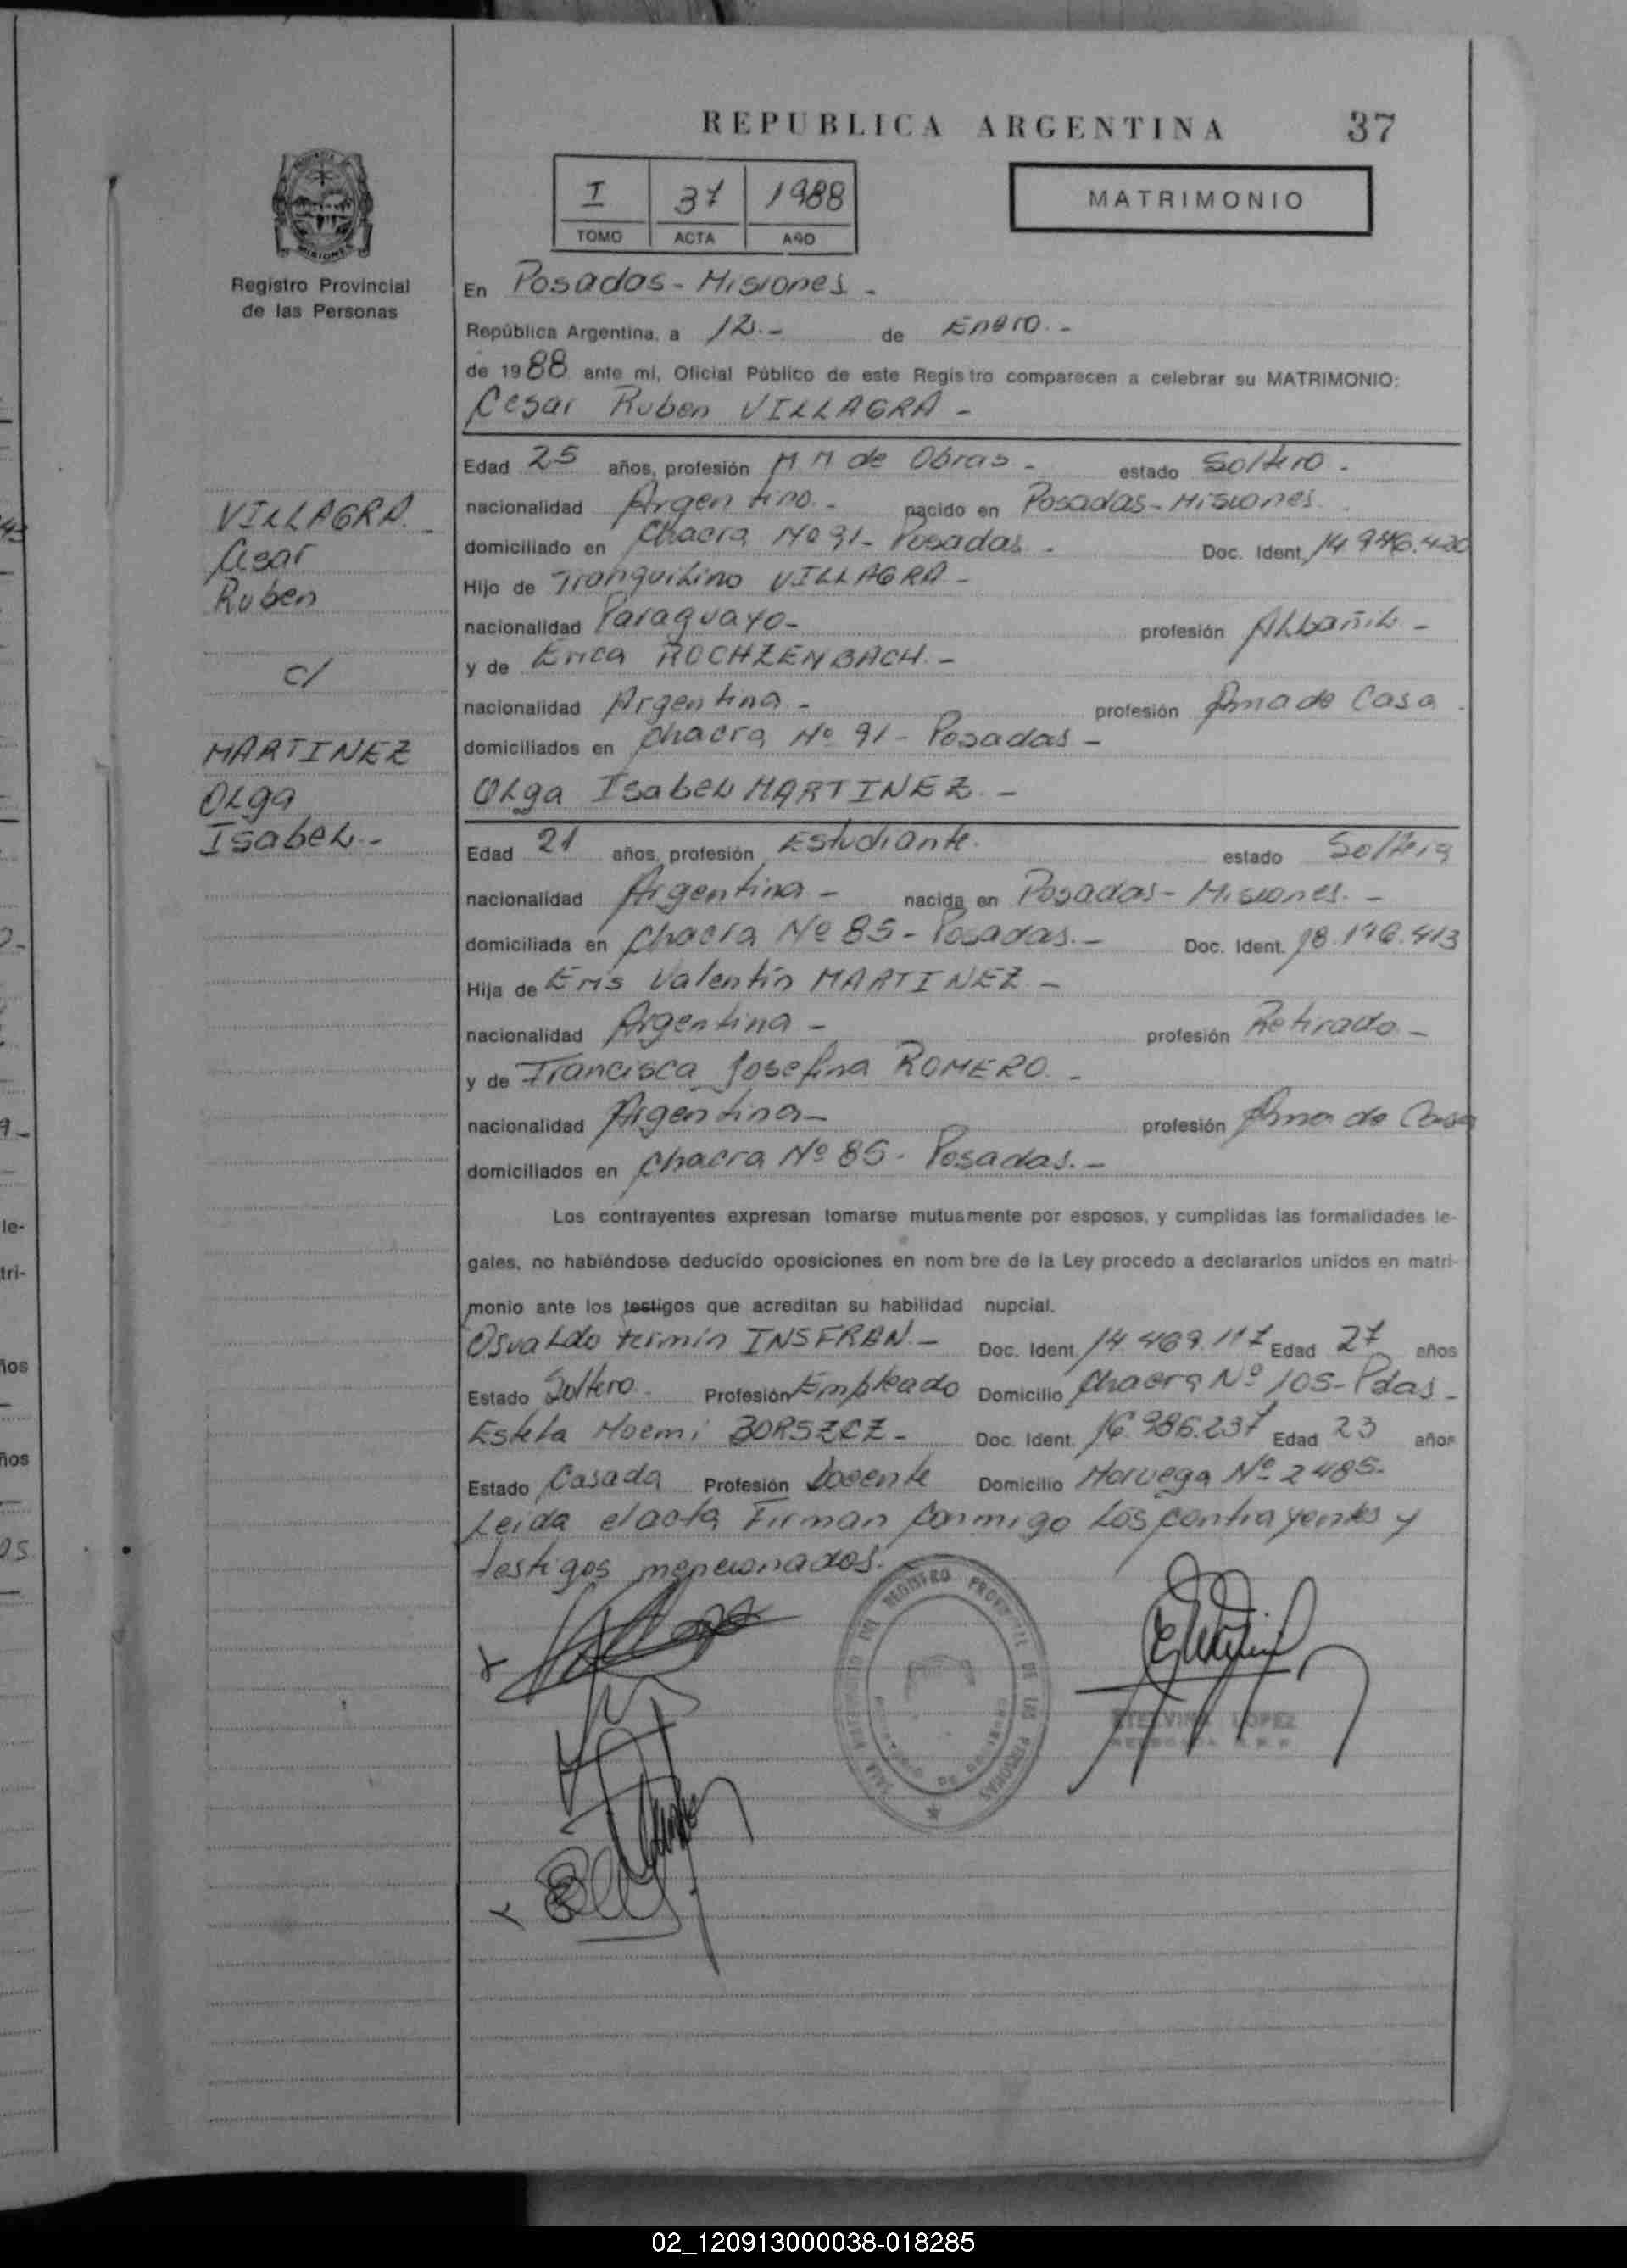 REPUBLICA ARGENTINA 37
I 37 1988
TOMO ACTA AÑO
MATRIMONIO
Registro Provincial
de las Personas
En Posadas - Misiones -
República Argentina, a 12.- de Enero.-
de 1988 ante mi, Oficial Público de este Registro comparecen a celebrar su MATRIMONIO:
Cesar Ruben VILLAGRA -
Edad 25 años, profesión M M de Obras - estado Soltero.
nacionalidad Argentino.- nacido en Posadas - Misiones.
domiciliado en Chacra Nº 91 - Posadas. Doc. Ident. 14.946.420
Hijo de Tranquilino VILLAGRA -
nacionalidad Paraguayo - profesión Albañil -
y de Erica ROCHZENBACH.-
nacionalidad Argentina - profesión Ama de Casa.
domiciliados en Chacra Nº 91 - Posadas -
Olga Isabel MARTINEZ.-
Edad 21 años, profesión Estudiante. estado Soltera
nacionalidad Argentina - nacida en Posadas - Misiones.-
domiciliada en Chacra Nº 85 - Posadas.- Doc. Ident. 18.196.413
Hija de Eris Valentin MARTINEZ.-
nacionalidad Argentina - profesión Retirado -
y de Francisca Josefina ROMERO.-
nacionalidad Argentina - profesión Ama de Casa
domiciliados en Chacra Nº 85 - Posadas.-
VILLAGRA.-
Cesar
Ruben
c/
MARTINEZ
Olga
Isabel.-
Los contrayentes expresan tomarse mutuamente por esposos, y cumplidas las formalidades le-
gales, no habiéndose deducido oposiciones en nombre de la Ley procedo a declararlos unidos en matri-
monio ante los testigos que acreditan su habilidad nupcial.
Osvaldo Fermin INSFRAN.- Doc. Ident. 14.469.117 Edad 27 años
Estado Soltero. Profesión Empleado Domicilio Chacra Nº 105 - Pdas -
Estela Noemi BORSZCZ - Doc. Ident. 16.986.237 Edad 23 años
Estado Casada Profesión Docente Domicilio Noruega Nº 2485.
Leida el acta Firman conmigo los contrayentes y
testigos mencionados.
REGISTRO PROVINCIAL DE LAS PERSONAS
LOPEZ
02_120913000038-018285